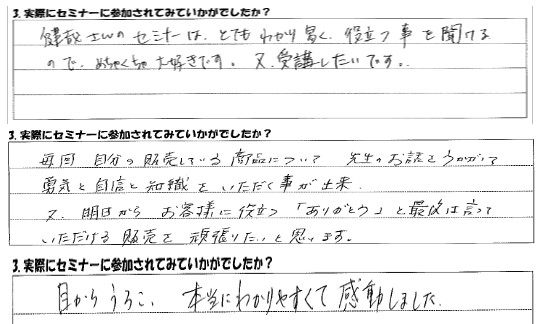 3. 実際にセミナーに参加されてみていかがでしたか？
健哉さんのセミナーは、とてもわかり易く、役立つ事を聞ける
ので、めちゃくちゃ大好きです。又、受講したいです。
3. 実際にセミナーに参加されてみていかがでしたか？
毎回 自分の販売している商品について 先生のお話をうかがって
勇気と自信と知識をいただく事が出来、
又、明日から お客様に役立つ「ありがとう」と最後は言って
いただける 販売を 頑張りたいと思います。
3. 実際にセミナーに参加されてみていかがでしたか？
目からうろこ、本当にわかりやすくて感動しました。